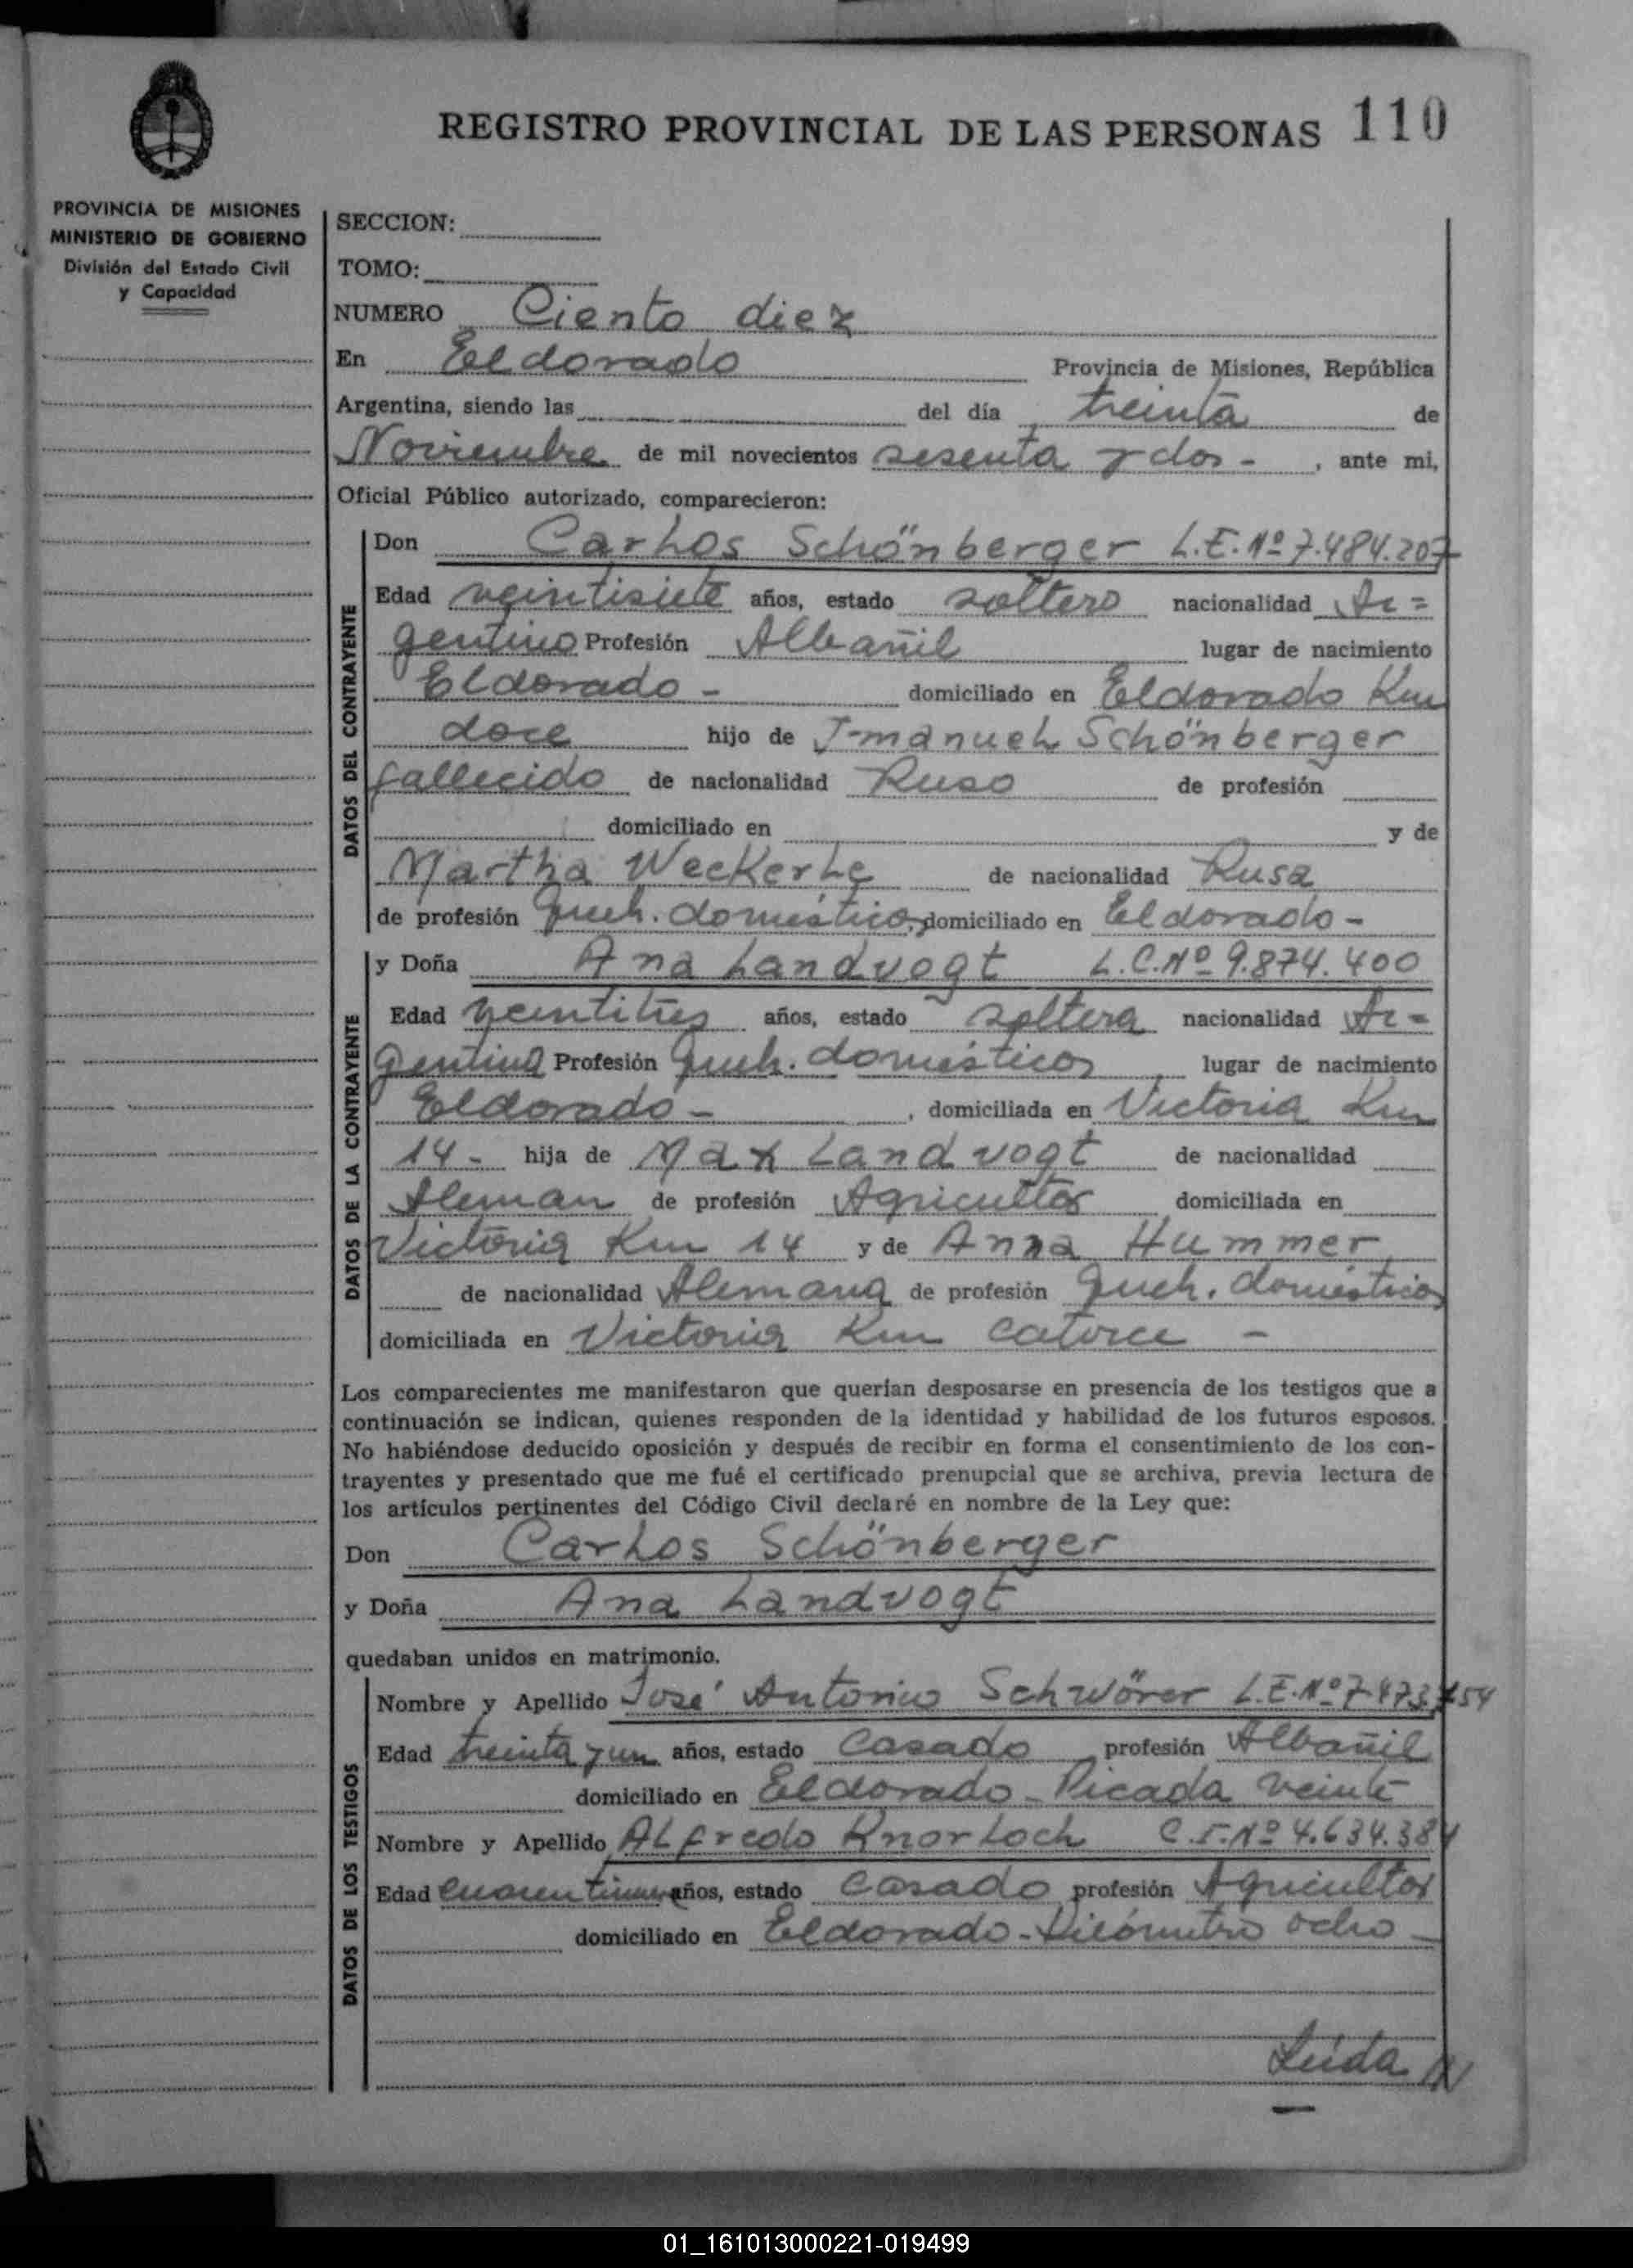 REGISTRO PROVINCIAL DE LAS PERSONAS 110
PROVINCIA DE MISIONES
MINISTERIO DE GOBIERNO
División del Estado Civil
y Capacidad
SECCION:
TOMO:
NUMERO Ciento diez
En Eldorado Provincia de Misiones, República
Argentina, siendo las del día treinta de
Noviembre de mil novecientos sesenta y dos - , ante mi,
Oficial Público autorizado, comparecieron:
DATOS DEL CONTRAYENTE
Don Carlos Schönberger L.E. Nº 7.484.207
Edad veintisiete años, estado soltero nacionalidad Ar=
gentino Profesión Albañil lugar de nacimiento
Eldorado - domiciliado en Eldorado Km
doce hijo de Imanuel Schönberger
fallecido de nacionalidad Ruso de profesión
domiciliado en y de
Martha Weckerle de nacionalidad Rusa
de profesión Queh. domésticos, domiciliado en Eldorado -
DATOS DE LA CONTRAYENTE
y Doña Ana Landvogt L.C. Nº 9.874.400
Edad veintitres años, estado soltera nacionalidad Ar=
gentina Profesión Queh. domésticos lugar de nacimiento
Eldorado - , domiciliada en Victoria Km
14 - hija de Max Landvogt de nacionalidad
Aleman de profesión Agricultor domiciliada en
Victoria Km 14 y de Anna Hummer
de nacionalidad Alemana de profesión Queh. domésticos
domiciliada en Victoria Km catorce -
Los comparecientes me manifestaron que querían desposarse en presencia de los testigos que a
continuación se indican, quienes responden de la identidad y habilidad de los futuros esposos.
No habiéndose deducido oposición y después de recibir en forma el consentimiento de los con-
trayentes y presentado que me fué el certificado prenupcial que se archiva, previa lectura de
los artículos pertinentes del Código Civil declaré en nombre de la Ley que:
Don Carlos Schönberger
y Doña Ana Landvogt
quedaban unidos en matrimonio.
DATOS DE LOS TESTIGOS
Nombre y Apellido José Antonio Schwörer L.E. Nº 7.473.754
Edad treinta y un años, estado Casado profesión Albañil
domiciliado en Eldorado - Picada veinte
Nombre y Apellido Alfredo Knorloch C.I. Nº 4.634.384
Edad años, estado Casado profesión Agricultor
domiciliado en Eldorado - Kilómetro ocho -
Leída
01_161013000221-019499